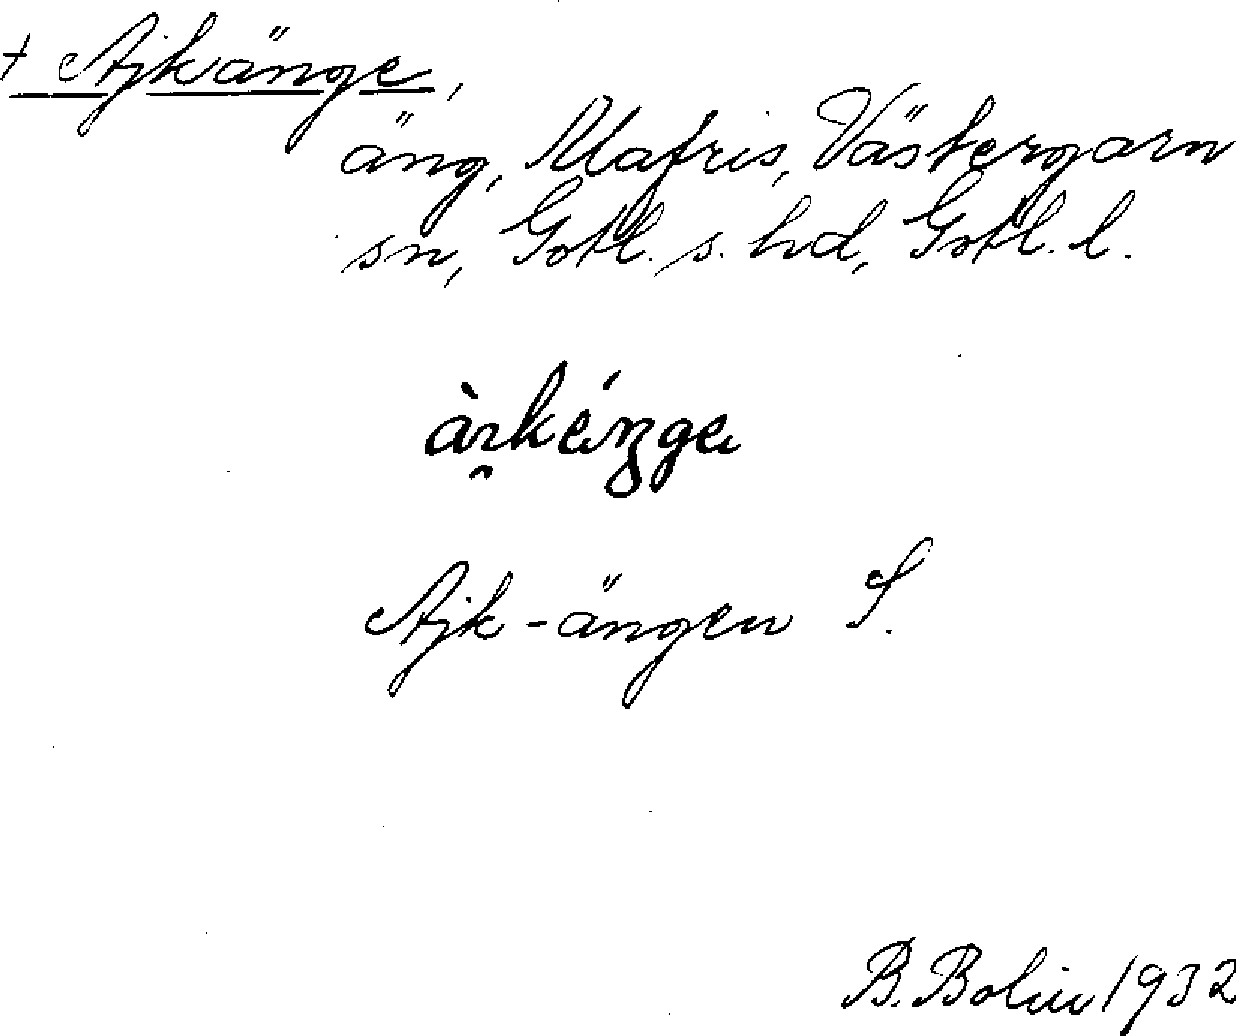 + Ajkänge,
äng, Mafris, Västergarn
sn, Gotl. s. hd, Gotl. l.
Ajk-ängen S.
B. Bolin 1932